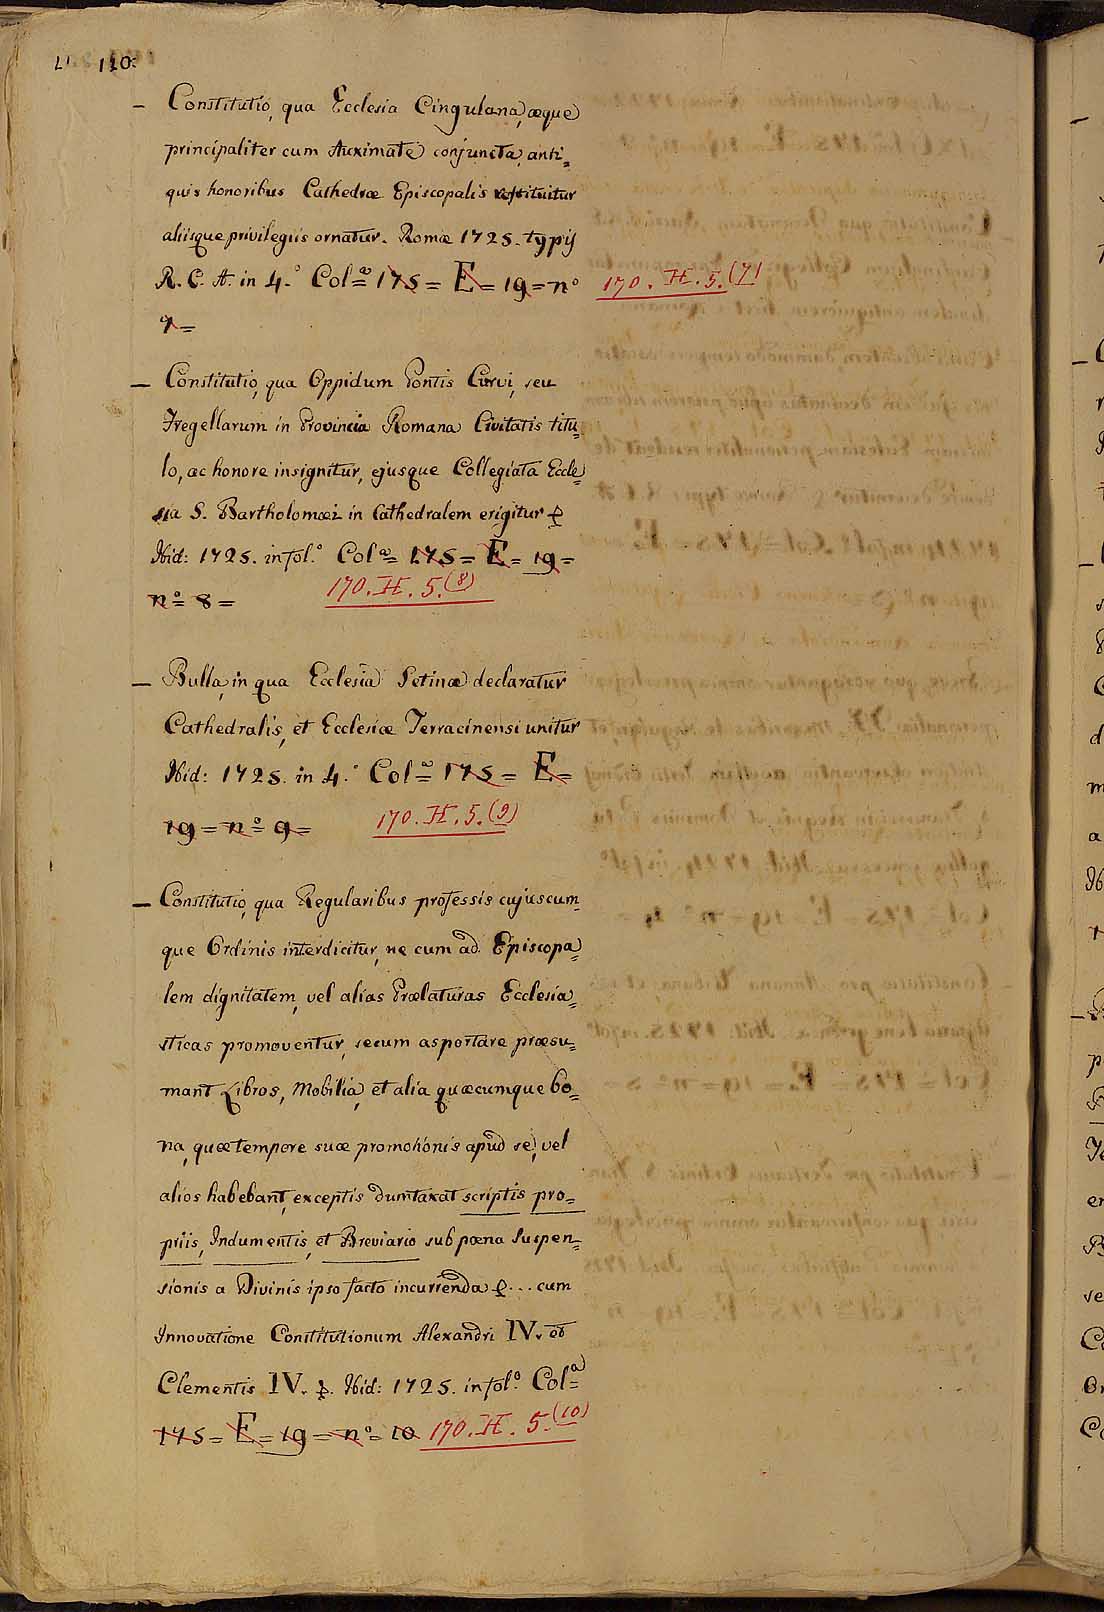 110.
– Constitutio, qua Ecclesia Cingulana, æque
principaliter cum Auximate conjuncta, anti=
quis honoribus Cathedræ Episcopalis restituitur
aliisque privilegiis ornatur. Romæ 1725. typis
R. C. A. in 4.° Colª = 175 = E = 19 = n°
7 =
170. H. 5. (7)
– Constitutio, qua Oppidum Pontis Curvi, seu
Fregellarum in Provincia Romana Civitatis titu=
lo, ac honore insignitur, ejusque Collegiata Eccle=
sia S. Bartholomæi in Cathedralem erigitur &
Ibid: 1725. in fol.° Colª = 175 = E = 19 =
n° = 8 =
170. H. 5. (8)
– Bulla, in qua Ecclesia Setina declaratur
Cathedralis, et Ecclesiæ Terracinensi unitur
Ibid: 1725. in 4.° Colª = 175 = E =
19 = n° = 9 =
170. H. 5. (9)
– Constitutio, qua Regularibus professis cujuscum=
que Ordinis interdicitur, ne cum ad Episcopa=
lem dignitatem, vel alias Prælaturas Ecclesia=
sticas promoventur, secum asportare præsu=
mant Libros, Mobilia, et alia quæcumque bo=
na, quæ tempore suæ promotionis apud se, vel
alios habebant, exceptis dumtaxat scriptis pro=
priis, Indumentis, et Breviario sub pœna Suspen=
sionis a Divinis ipso facto incurrenda &... cum
Innovatione Constitutionum Alexandri IV. et
Clementis IV. &. Ibid: 1725. in fol.° Colª =
175 = E = 19 = n° = 10 170. H. 5. (10)